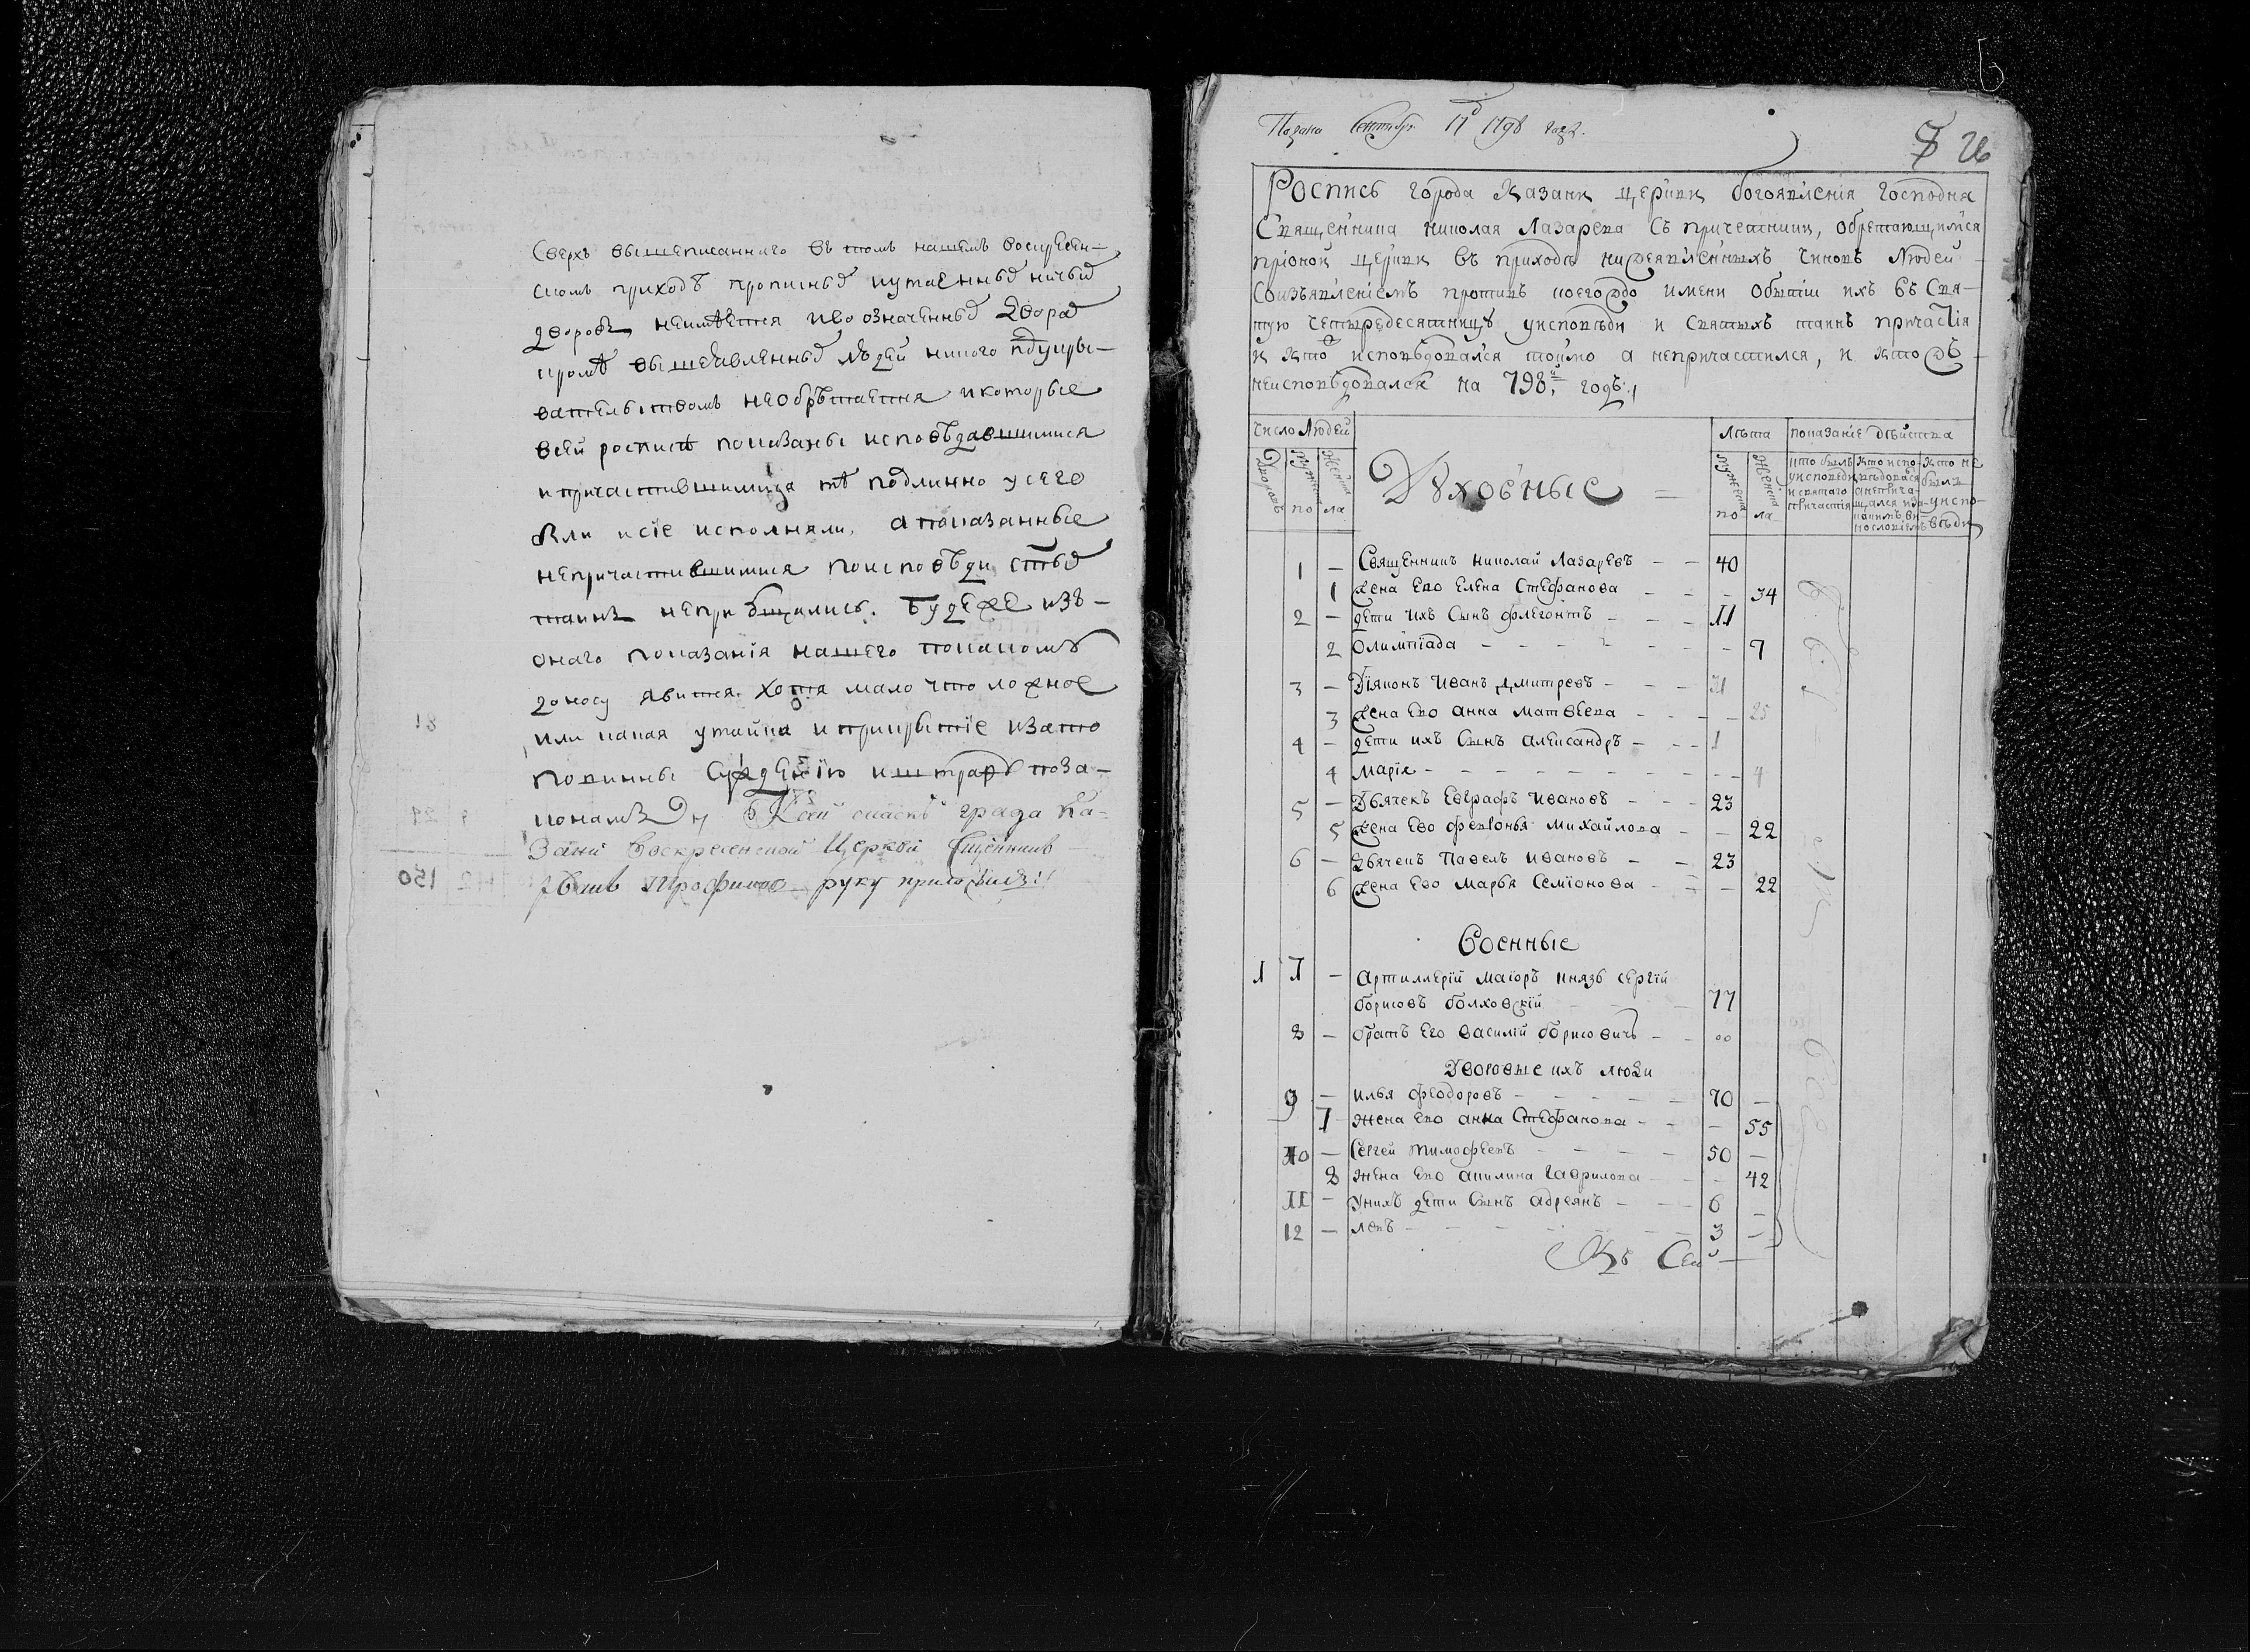 Сверхъ вышеписаннаго въ томъ нашемъ воскресен-
скомъ приходѣ прописныхъ иутаенныхъ ничьихъ
дворовъ неимѣется иво означенныхъ дворах
кромѣ вышеявленныхъ людей никого подукры-
вательствомъ необрѣтается икоторые
всей росписѣ показаны исповѣдавшимися
ипричастившимися тѣ подлинно усего
были исіе исполняли, апоказанные
непричастившимися поисповѣди стых
таинъ неприбщились. Будеже изъ-
онаго показанія нашего покакомѣ
доносу явится хотя мало что ложное
или какая утайка иприкрытіе изато
повинны сужденію иштрафѣ поза-
конамъ Къ сей сказкѣ града Ка-
зани Воскресенской Церкви Сщенникъ
Трофимов руку приложилъ
Подана Сентябр: 11д 1798 года.
26
Роспись города Казани церкви богоявленія господня
Священника николая Лазарева съ причетники, обретающимися
прионой церкви въ приходѣ нижеявленныхъ чиновъ людей
Соизъявленіемъ противъ коегождо имени обытіи ихъ въ Свя-
тую четыредесятницу уисповѣди и святыхъ таинъ причастія
и кто исповѣдовался токмо а непричастился, и ктожъ
неисповѣдовался на 798й годъ
Число людей
Лѣта
показаніе дѣйства
Дворовъ
мужеска
женска
по
ла
Духовные
мужеска
женска
по
ла
кто былъ уисповеди исвятаго причастія
кто испо-вѣдовался анеприча-щался и закакимъ ви-нословіемъ
кто не былъ уиспо-вѣди
1 — Священникъ николай Лазаревъ — — 40
1 жена ево Елена Стефанова — — — 34
2 — дети ихъ Сынъ флегонтъ — — — 11
2 Олимпіада — — — — 9
3 — Діяконъ Иванъ Дмитревъ — — — 31
3 жена ево анна матвѣева — — — — 25
4 — дети ихъ Сынъ александръ — — — 1
4 марія — — — — 4
5 — Дьячекъ Евграфъ Ивановъ — — — 23
5 жена ево февронья михайлова — — 22
6 — дьячекъ Павелъ ивановъ — — 23
6 жена ево марья Семіонова — — — 22
Военные
1 7 — артиллеріи маіоръ князь сергій
борисовъ болховскій — 77
8 — братъ Его василій борисовичь — —
дворовые ихъ люди
9 — илья феодоровъ — — — — 70 —
7 жена ево анна Стефанова — — — 55
10 — Сергей тимофеевъ — — — — 50 —
8 жена ево акилина гаврилова — — — 42
11 — Унихъ дети Сынъ адреянъ — — — 6 —
12 — левъ — — — — 3 —
Къ Сей